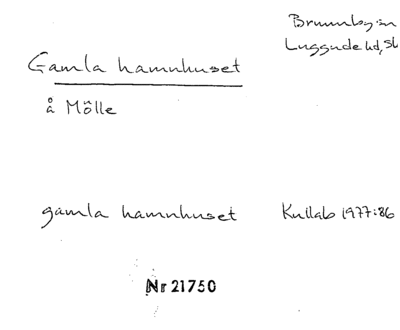 Brunnby sn
Luggude hd, Sk
Gamla hamnhuset
å Mölle
gamla hamnhuset Kullab 1977:86
Nr 21750